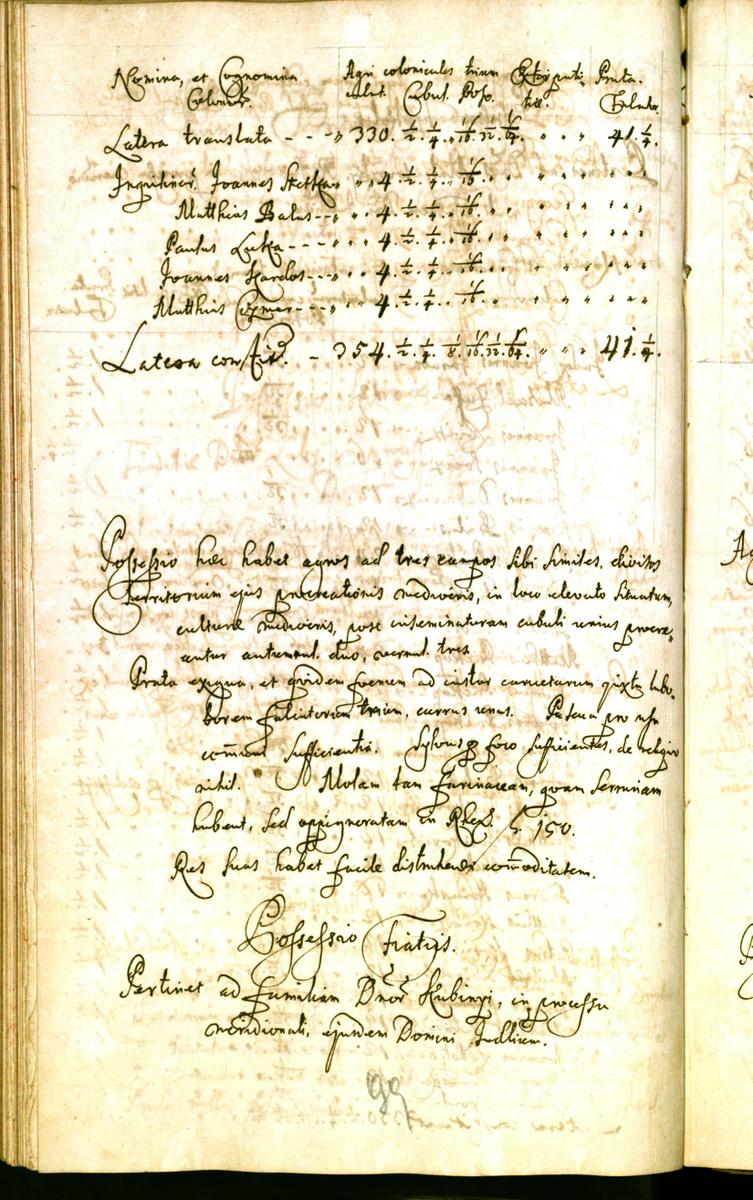 Nomina, et Cognomina Agri colonicales trium Extirpati= Prata.
Colonor. calcat. Cubul. Pos. tiae. Falcator.
Latera translata - - - „ 330. 1/2. 1/4. „ 1/16. 1/32. 1/64. „ „ „ 41. 1/4.
Inquilinor. Joannes „ „ 4. 1/2. 1/4. „ 1/16. „ „ „ „ „ „ „ „
Matthias Balas - - „ „ „ 4. 1/2. 1/4. „ 1/16. „ „ „ „ „ „ „ „
Paulus Luka - - - - „ „ 4. 1/2. 1/4. „ 1/16. „ „ „ „ „ „ „ „
Joannes Kardos - - - „ „ 4. 1/2. 1/4. „ 1/16. „ „ „ „ „ „ „ „
Matthias - - - „ „ 4. 1/2. 1/4. „ 1/16. „ „ „ „ „ „ „ „
Latera - 354. 1/2. 1/4. 1/8. 1/16. 1/32. 1/64. „ „ „ 41. 1/4.
Possessio haec habet agros ad tres campos sibi similes, divisos
Territorium ejus procreationis mediocris, in loco elevato situatum,
culturae mediocris, post inseminaturam cubuli unius procre=
antur autumnal. duo, vernal. tres.
Prata exigua, et quidem foenum ad instar carectarum juxta labo=
borem falcatorum trium, currus unus. Pascua pro usu
com̄uni sufficientia. Sylvas pro foco sufficientes, de reliquo
nihil. Molam tam farinaceam, quam Serrariam
habent, sed oppignoratam in Rhen. f. 150.
Res suas habet facile distrahendi com̄oditatem.
Possessio
Pertinet ad familiam Dnor Kubinyi, in processu
meridionali, ejusdem Domini Judlium.
99